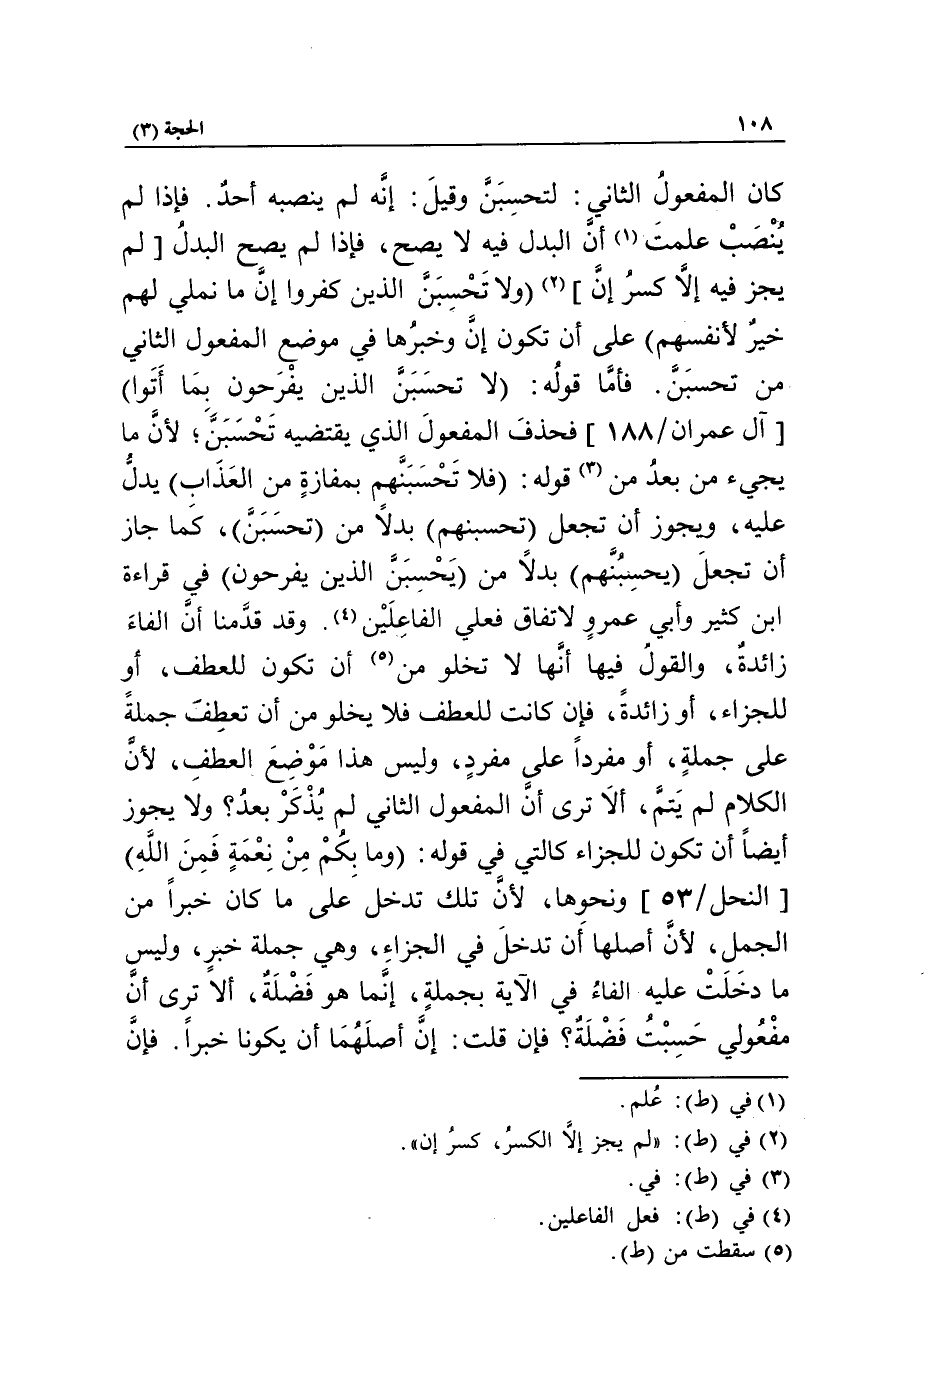 ١٠٨ الحجة (٣)
كان المفعولُ الثاني: لتحسِبَنَّ وقيلَ: إنَّه لم ينصبه أحدٌ. فإذا لم
يُنْصَبْ علمتَ (١) أنَّ البدل فيه لا يصح، فإذا لم يصح البدلُ [ لم
يجز فيه إلَّا كسرُ إنَّ ] (٢) (ولا تَحْسِبَنَّ الذين كفروا إنَّ ما نملي لهم
خيرٌ لأنفسهم) على أن تكون إنَّ وخبرُها في موضع المفعول الثاني
من تحسبَنَّ. فأمَّا قولُه: (لا تحسَبَنَّ الذين يفْرَحون بِمَا أَتَوا)
[ آل عمران/١٨٨ ] فحذفَ المفعولَ الذي يقتضيه تَحْسَبَنَّ؛ لأنَّ ما
يجيء من بعدُ من (٣) قوله: (فلا تَحْسَبَنَّهم بمفازةٍ من العَذَابِ) يدلُّ
عليه، ويجوز أن تجعل (تحسبنهم) بدلاً من (تحسَبَنَّ)، كما جاز
أن تجعلَ (يحسِبُنَّهم) بدلًا من (يَحْسِبَنَّ الذين يفرحون) في قراءة
ابن كثير وأبي عمروٍ لاتفاق فعلي الفاعِلَيْن (٤). وقد قدَّمنا أنَّ الفاءَ
زائدةٌ، والقولُ فيها أنَّها لا تخلو من (٥) أن تكون للعطف، أو
للجزاء، أو زائدةً، فإن كانت للعطف فلا يخلو من أن تعطِفَ جملةً
على جملةٍ، أو مفرداً على مفردٍ، وليس هذا مَوْضِعَ العطفِ، لأنَّ
الكلام لم يَتمَّ، ألَا ترى أنَّ المفعول الثاني لم يُذْكَرْ بعدُ؟ ولا يجوز
أيضاً أن تكون للجزاء كالتي في قوله: (وما بِكُمْ مِنْ نِعْمَةٍ فَمِنَ اللَّهِ)
[ النحل/٥٣ ] ونحوِها، لأنَّ تلك تدخل على ما كان خبراً من
الجمل، لأنَّ أصلها أن تدخلَ في الجزاءِ، وهي جملة خبرٍ، وليس
ما دخَلَتْ عليه الفاءُ في الآية بجملةٍ، إنَّما هو فَضْلَةٌ، ألا ترى أنَّ
مفْعُولي حَسِبْتُ فَضْلَةٌ؟ فإن قلت: إنَّ أصلَهُمَا أن يكونا خبراً. فإنَّ
(١) في (ط): عُلم.
(٢) في (ط): «لم يجز إلَّا الكسرُ، كسرُ إن».
(٣) في (ط): في.
(٤) في (ط): فعل الفاعلين.
(٥) سقطت من (ط).